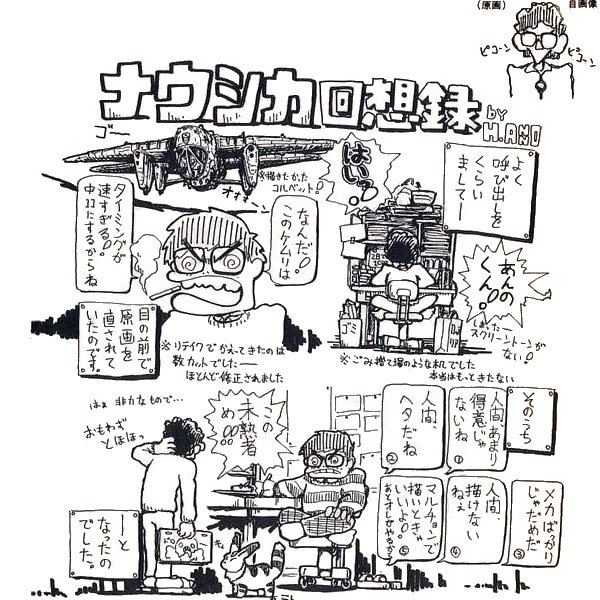 (原画)
自画像
ピコーン
ピコーン
ナウシカ回想録
by H.ANO
ゴー
※描きたかった
コルベット!
よく
呼び出しを
くらい
まして—
はいっ!
あんの
くん!
なんだ!
このケムリは
タイミングが
速すぎる!!
中ヌキにするからね
目の前で
原画を
直されて
いたのです。
※リテイクでかえってきたのは
数カットでした—
ほとんど修正されました
ゴミ
スクリーントーンが
ない!
※ごみ捨て場のような机でした
本当はもっときたない
そのうち
人間、あまり
得意じゃ
ないね
①
人間、
ヘタだね
②
メカばっかり
じゃだめだ
③
人間、
描けない
ねぇ
④
マルチョンで
描いとき
いいよ。
⑤
この
未熟者
め!!
はぁ 非力なもので…
おもわず
とほほっ
—と
なったの
でした。